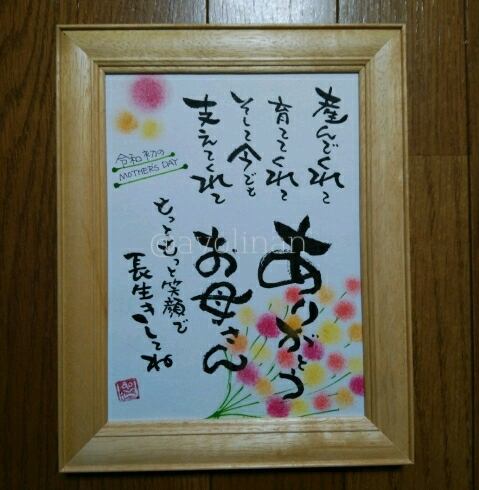 産んでくれて
育ててくれて
そして今でも
支えてくれて
ありがとう
お母さん
もっともっと笑顔で
長生きしてね
令和初の
MOTHERS DAY
@ayolinan